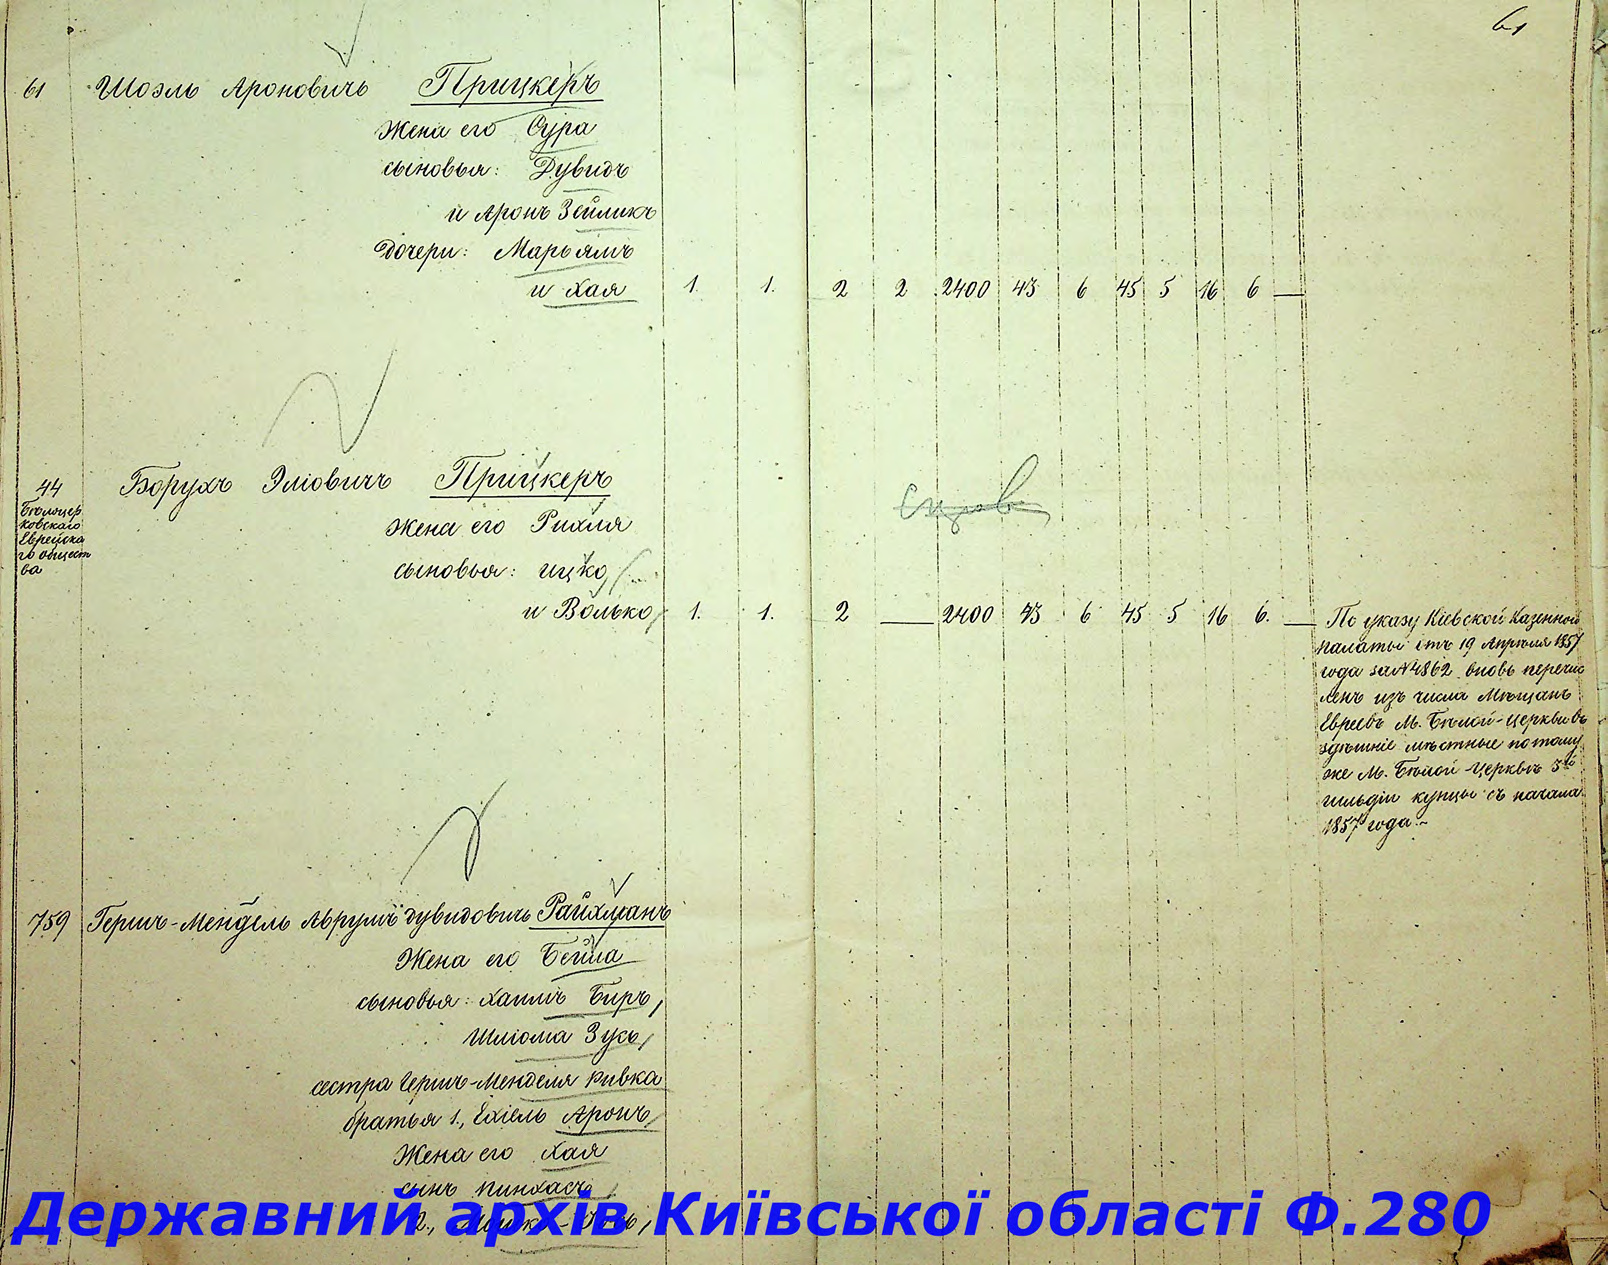 61
61 Шоэль Ароновичъ Прицкеръ
Жена его Сура
сыновья: Дувидъ
и Аронъ Зейликъ
Дочери: Марьямъ
и Хая 1. 1. 2 2 2400 43 6 45 5 16 6 —
44 Борухъ Эліовичъ Прицкеръ
Бѣлоцер
ковскаго
Еврейска
го общест
ва
Жена его Рихля
сыновья: Ицко
и Волько 1. 1. 2 — 2400 43 6 45 5 16 6. —
По указу Кіевской Казенной
палаты отъ 19 Апрѣля 1857
года за № 4862 вновь перечис
ленъ изъ числа Мѣщанъ
Евреевъ М. Бѣлой-Церкви въ
здѣшніе мѣстные по тому
же М. Бѣлой Церквѣ 3й
гильдіи купцы съ начала
1857 года.~
759 Гершъ-Мендель Аврумъ Дувидовичъ Райхманъ
Жена его Бейла
сыновья: Хаимъ Биръ,
Шліома Зусь,
сестра Гершъ-Менделя Ривка
братья 1., Ехіель Аронъ,
Жена его Хая
сынъ Пинхасъ
2.,
Державний архів Київської області Ф.280